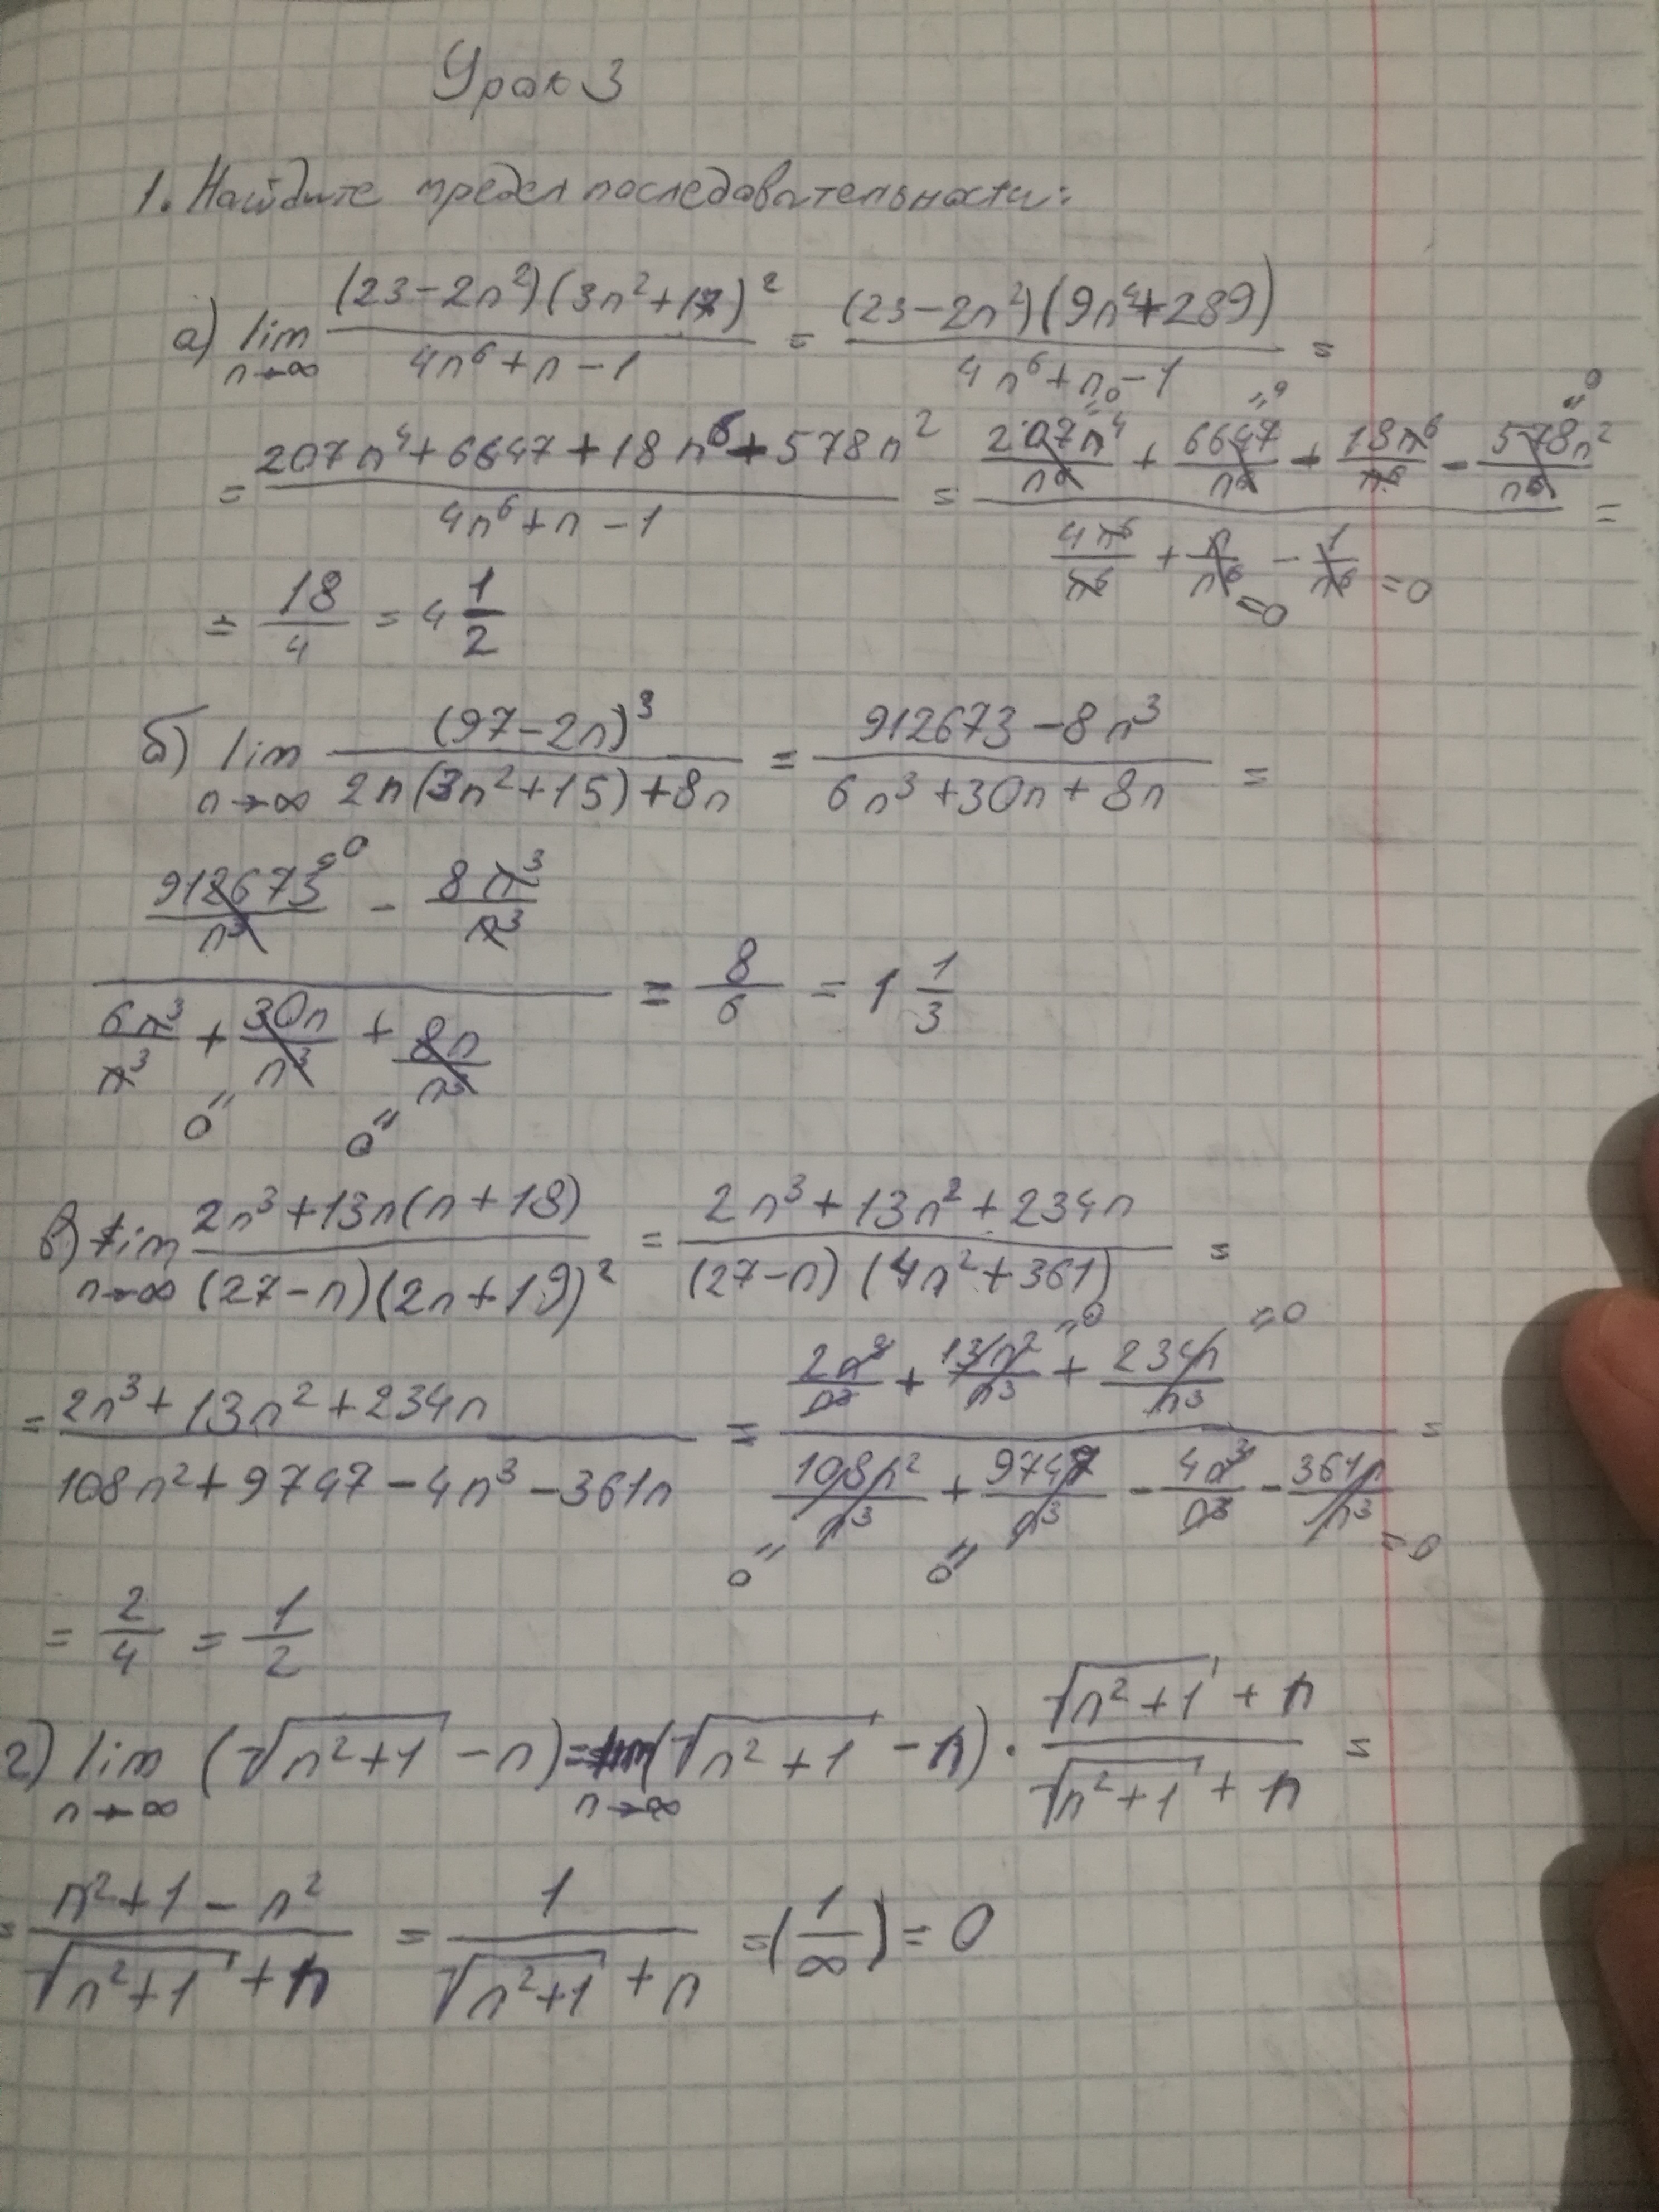 Урок 3
1. Найдите предел последовательности:
а) lim n→∞ (23-2n²)(3n²+17)² / 4n⁶+n-1 = (23-2n²)(9n⁴+289) / 4n⁶+n-1 =
= 207n⁴+6647+18n⁶+578n² / 4n⁶+n-1 = 207n⁴/n⁶ =0 + 6647/n⁶ =0 - 18n⁶/n⁶ - 578n²/n⁶ =0 / 4n⁶/n⁶ + n/n⁶ =0 - 1/n⁶ =0 =
= 18/4 = 4 1/2
б) lim n→∞ (97-2n)³ / 2n(3n²+15)+8n = 912673-8n³ / 6n³+30n+8n =
912673/n³ =0 - 8n³/n³ / 6n³/n³ + 30n/n³ =0 + 8n/n³ =0 = 8/6 = 1 1/3
в) lim n→∞ 2n³+13n(n+18) / (27-n)(2n+19)² = 2n³+13n²+234n / (27-n)(4n²+361) =
= 2n³+13n²+234n / 108n²+9747-4n³-361n = 2n³/n³ + 13n²/n³ =0 + 234n/n³ =0 / 108n²/n³ =0 + 9747/n³ =0 - 4n³/n³ - 361n/n³ =0 =
= 2/4 = 1/2
г) lim n→∞ (√n²+1 - n) = lim n→∞ (√n²+1 - n) · √n²+1 + n / √n²+1 + n =
= n²+1-n² / √n²+1 + n = 1 / √n²+1 + n = (1/∞) = 0